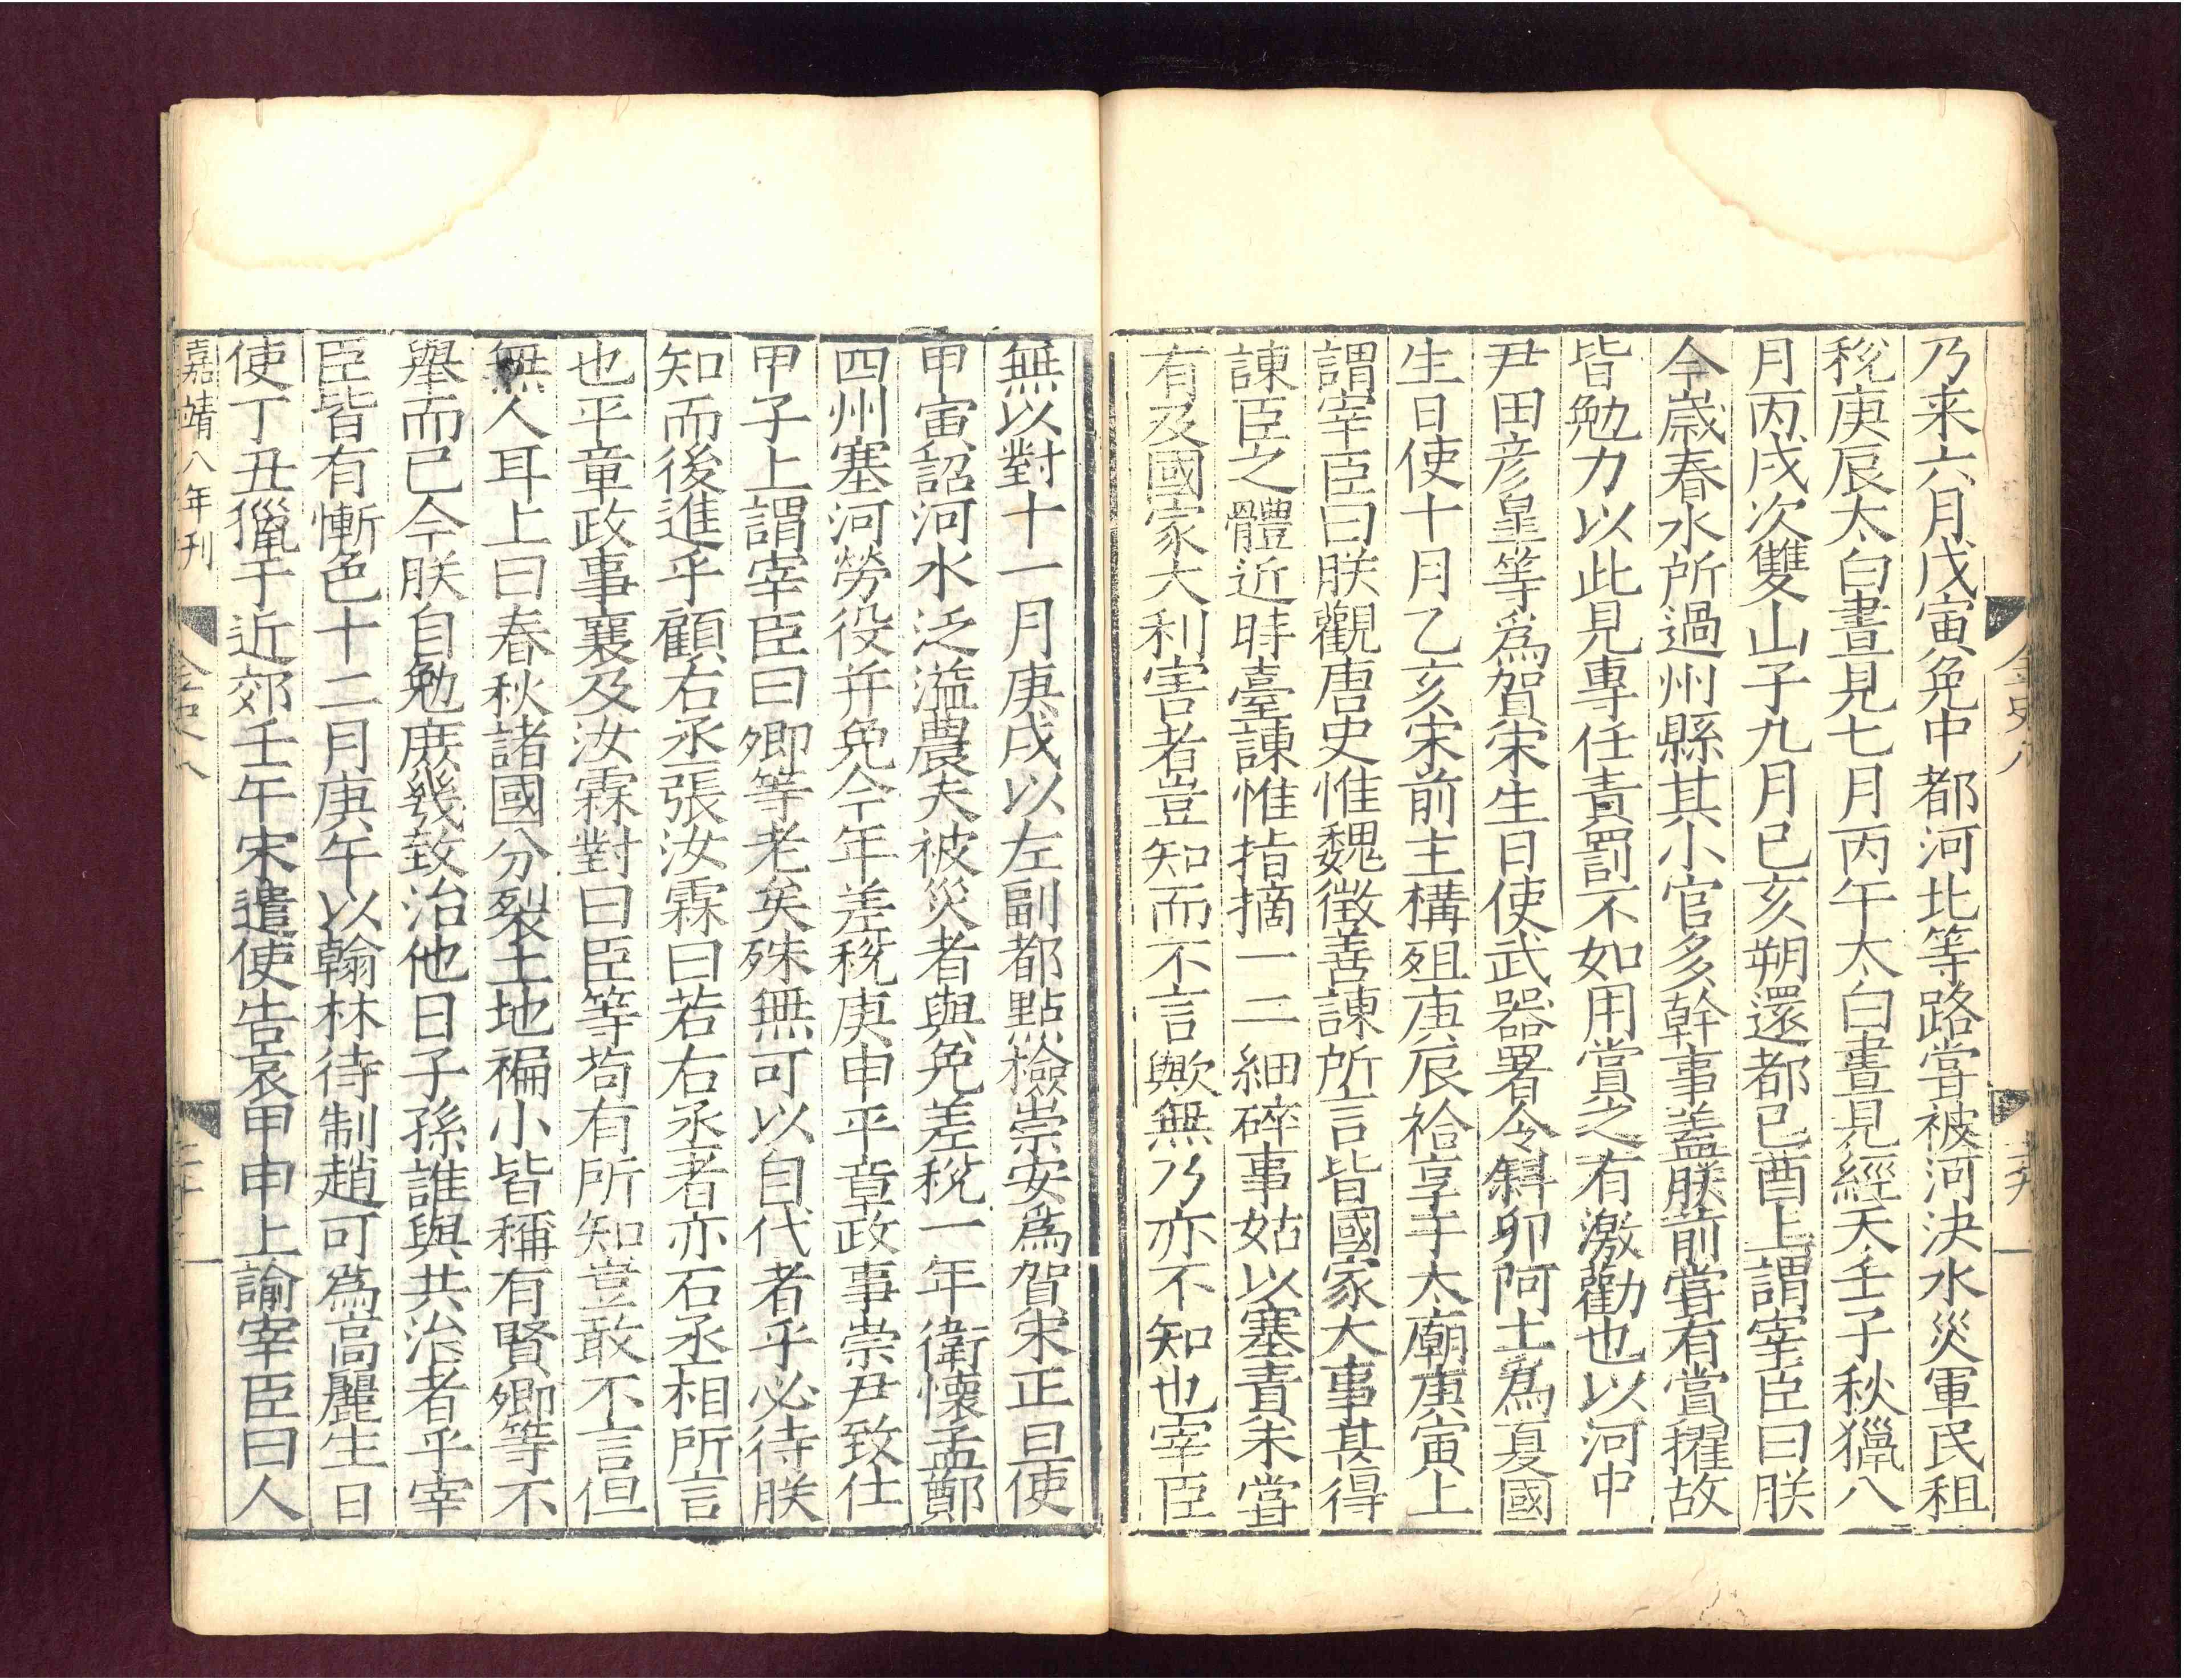 金史八
十九
乃来六月戊寅免中都河北等路嘗被河決水災軍民租
稅庚辰太白晝見七月丙午太白晝見經天壬子秋獵八
月丙戌次雙山子九月己亥朔還都己酉上謂宰臣曰朕
今歲春水所過州縣其小官多幹事蓋朕前嘗有賞擢故
皆勉力以此見專任責罰不如用賞之有激勸也以河中
尹田彦皐等爲賀宋生日使武器署令斜卯阿土爲夏國
生日使十月乙亥宋前主構殂庚辰祫享于太廟庚寅上
謂宰臣曰朕觀唐史惟魏徵善諫所言皆國家大事甚得
諫臣之體近時臺諫惟指摘一二細碎事姑以塞責未嘗
有及國家大利害者豈知而不言歟無乃亦不知也宰臣
無以對十一月庚戌以左副都點檢崇安爲賀宋正旦使
甲寅詔河水泛溢農夫被災者與免差稅一年衛懷孟鄭
四州塞河勞役并免今年差稅庚申平章政事崇尹致仕
甲子上謂宰臣曰卿等老矣殊無可以自代者乎必待朕
知而後進乎顧右丞張汝霖曰若右丞者亦石丞相所言
也平章政事襄及汝霖對曰臣等茍有所知豈敢不言但
無人耳上曰春秋諸國分裂土地褊小皆稱有賢卿等不
舉而已今朕自勉庶幾致治他日子孫誰與共治者乎宰
臣皆有慚色十二月庚午以翰林待制趙可爲高麗生日
使丁丑獵于近郊壬午宋遣使告哀甲申上諭宰臣曰人
嘉靖八年刊
金史八
二十